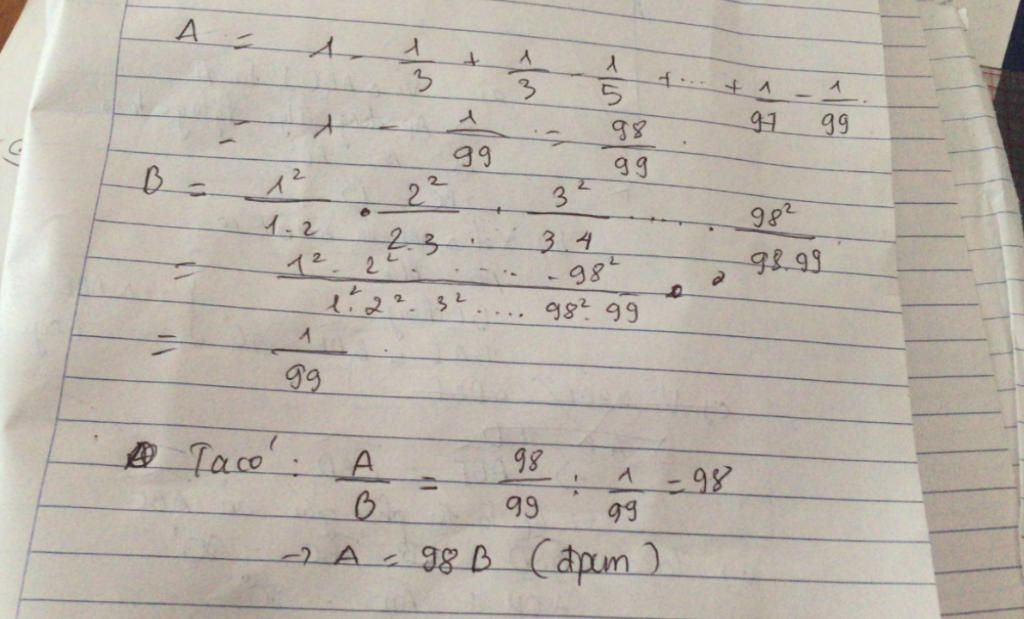 A = 1 - 1/3 + 1/3 - 1/5 + ... + 1/97 - 1/99
= 1 - 1/99 = 98/99.
B = 1²/1.2 . 2²/2.3 . 3²/3.4 ..... 98²/98.99
= 1².2² ..... 98²/1².2².3² .... 98².99
= 1/99.
Ta có: A/B = 98/99 : 1/99 = 98
→ A = 98B (đpcm)